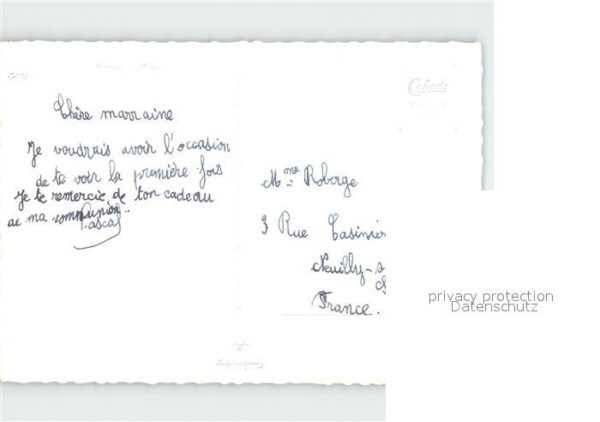 Chère marraine
Je voudrais avoir l'occasion
de te voir la première fois
Je te remercie de ton cadeau
de ma communion..
Pascal
Mme Roberge
3 Rue Casimir
Neuilly-s
France.
privacy protection
Datenschutz